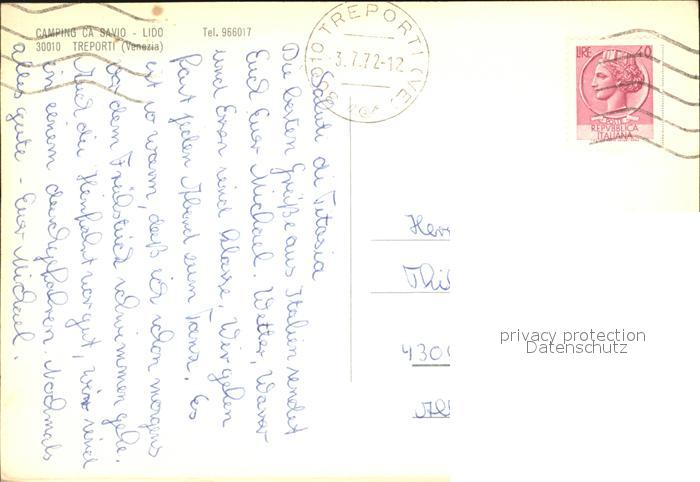 CAMPING CA SAVIO - LIDO Tel. 966017
30010 TREPORTI (Venezia)
30010 TREPORTI (VE)
3.7.72-12
LIRE 40
POSTE
REPVBBLICA
ITALIANA
Saluti di Vitasia
Die besten Grüße aus Italien sendet
Euch Euer Michael. Wetter, Wasser
und Essen sind klasse. Wir gehen
fast jeden Abend zum Tanz. Es
ist so warm, daß ich schon morgens
vor dem Frühstück schwimmen gehe.
Auch die Hinfahrt war gut, wir sind
in einem durchgefahren. Nochmals
alles gute - Euer Michael.
Herr
Thi
430
privacy protection
Datenschutz